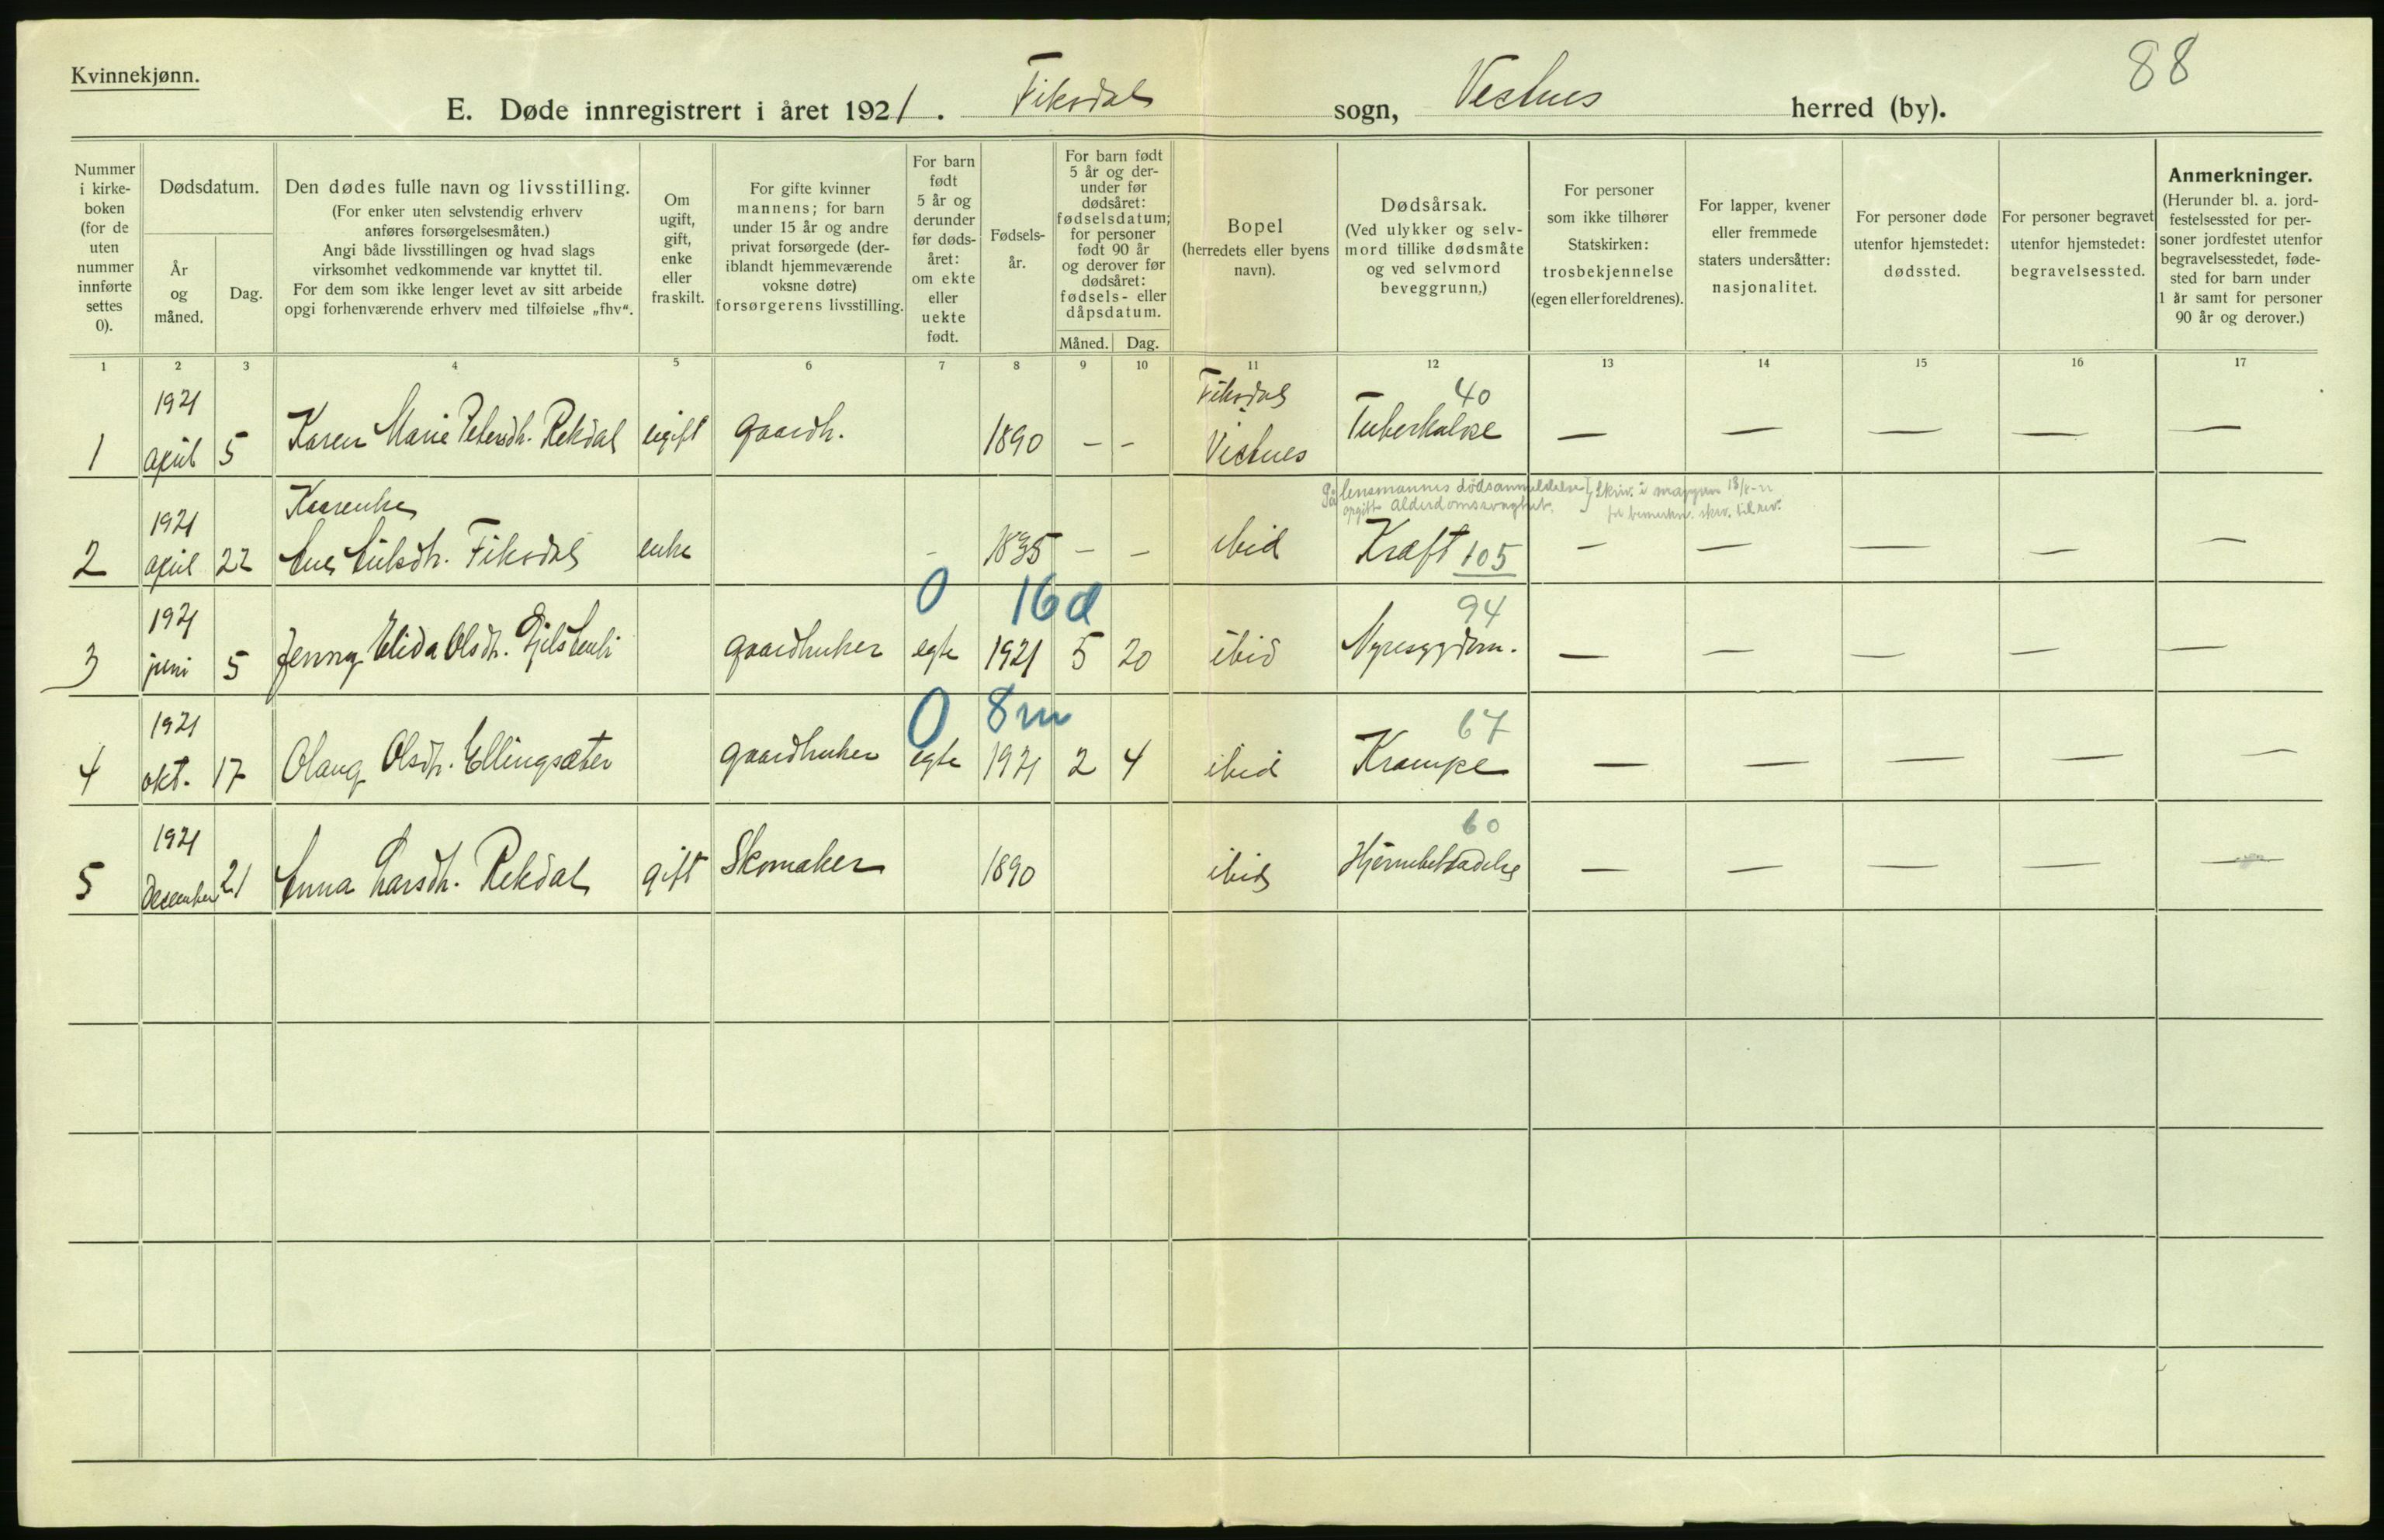 Kvinnekjønn.
88
E. Døde innregistrert i året 1921. Fiksdal sogn, Vestnes herred (by).
Nummer i kirkeboken (for de uten nummer innførte settes 0).
Dødsdatum.
År og måned.
Dag.
Den dødes fulle navn og livsstilling.
(For enker uten selvstendig erhverv
anføres forsørgelsesmåten.)
Angi både livsstillingen og hvad slags
virksomhet vedkommende var knyttet til.
For dem som ikke lenger levet av sitt arbeide
opgi forhenværende erhverv med tilføielse „fhv“.
Om
ugift,
gift,
enke
eller
fraskilt.
For gifte kvinner
mannens; for barn
under 15 år og andre
privat forsørgede (der-
iblandt hjemmeværende
voksne døtre)
forsørgerens livsstilling.
For barn
født
5 år og
derunder
før døds-
året:
om ekte
eller
uekte
født.
Fødsels-
år.
For barn født
5 år og der-
under før
dødsåret:
fødselsdatum;
for personer
født 90 år
og derover før
dødsåret:
fødsels- eller
dåpsdatum.
Måned. Dag.
Bopel
(herredets eller byens
navn).
Dødsårsak.
(Ved ulykker og selv-
mord tillike dødsmåte
og ved selvmord
beveggrunn.)
For personer
som ikke tilhører
Statskirken:
trosbekjennelse
(egen eller foreldrenes).
For lapper, kvener
eller fremmede
staters undersåtter:
nasjonalitet.
For personer døde
utenfor hjemstedet:
dødssted.
For personer begravet
utenfor hjemstedet:
begravelsessted.
Anmerkninger.
(Herunder bl. a. jord-
festelsessted for per-
soner jordfestet utenfor
begravelsesstedet, føde-
sted for barn under
1 år samt for personer
90 år og derover.)
1 2 3 4 5 6 7 8 9 10 11 12 13 14 15 16 17
1921 Fiksdal 40
1 april 5 Karen Marie Petersdt. Rekdal ugift gaardb. 1890 – – Vestnes Tuberkulose — — — — —
På lensmannens dødsanmeldelse
opgitt Alderdomssvaghet. Skriv. i mappen 18/8-22
1921 Kaarenke
2 april 22 Fiksdal enke – 1835 – – ibid Kræft 105 — — — — —
0 16 d 94
1921
3 juni 5 Jenny Elida Olsdt. gaardbruker egte 1921 5 20 ibid Nyresygdom. — — — — —
0 8 m 67
1921
4 okt. 17 Olaug Olsdt. Ellingsæter gaardbruker egte 1921 2 4 ibid Krampe — — — — —
1921 60
5 December 21 Anna Larsdt. Rekdal gift Skomaker 1890 ibid Hjernebetændelse — — — — —